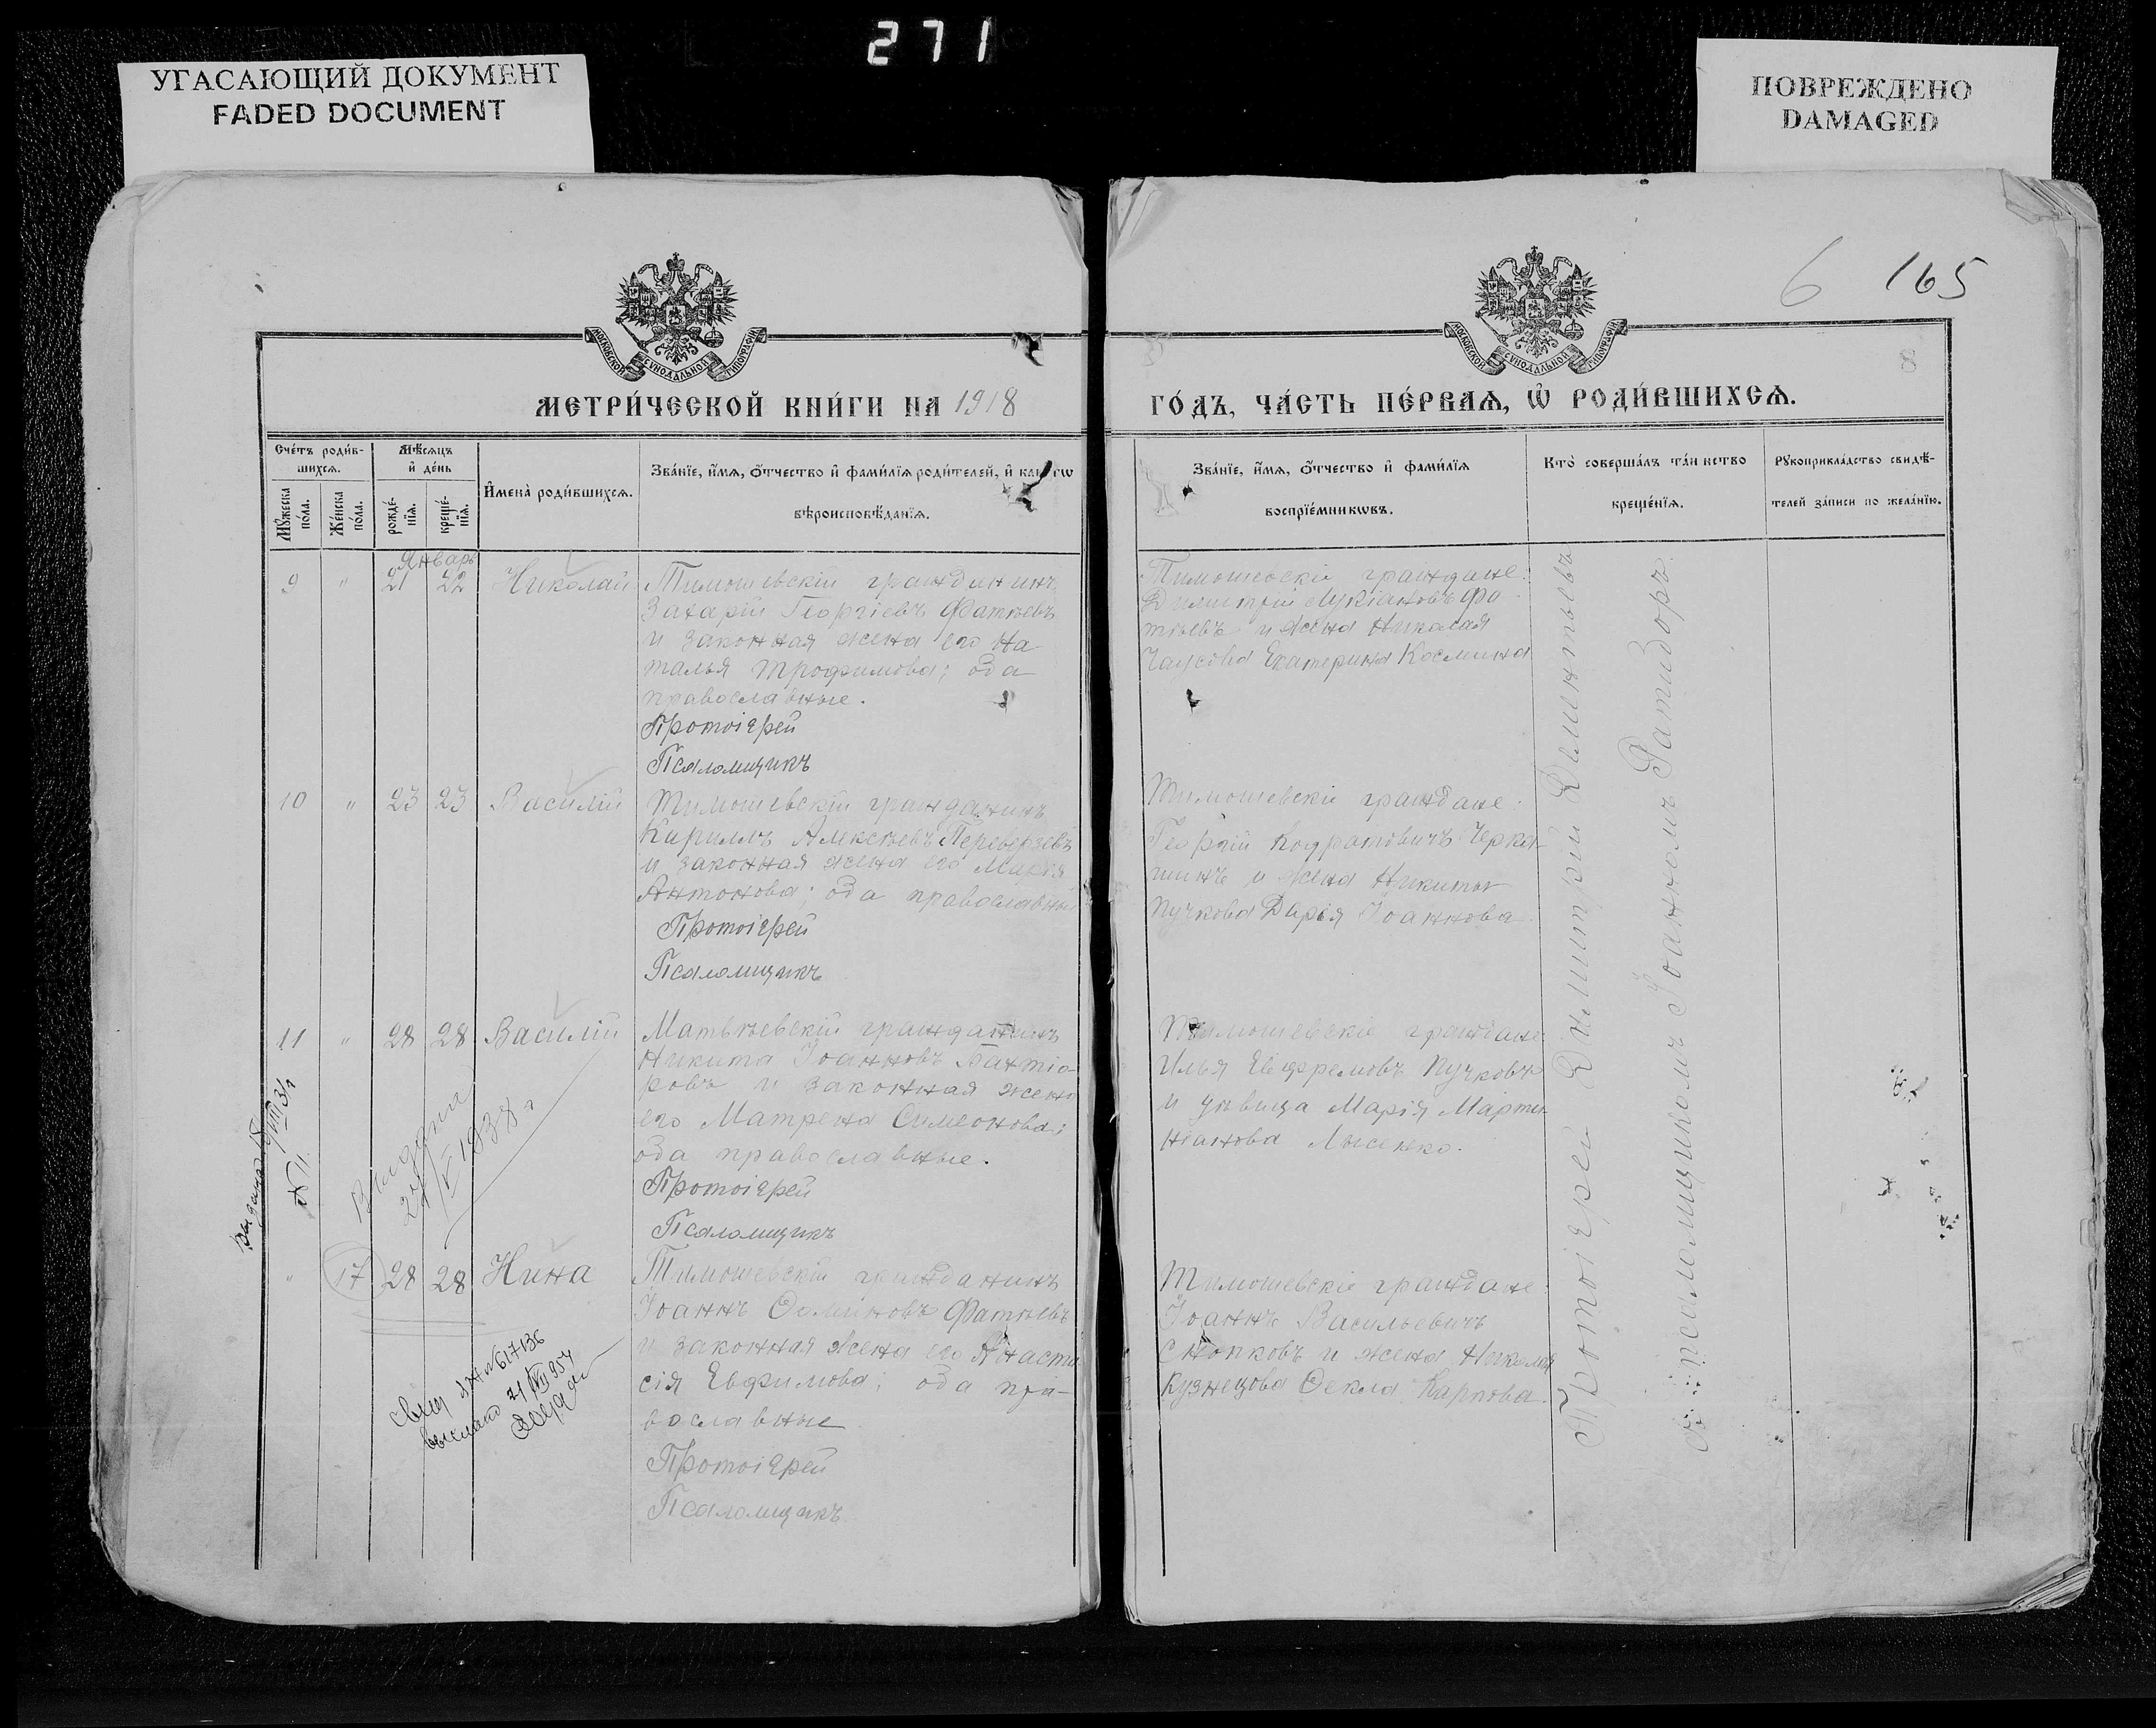 271
УГАСАЮЩИЙ ДОКУМЕНТ
FADED DOCUMENT
ПОВРЕЖДЕНО
DAMAGED
6 165
8
МОСКОВСКОЙ СѴНОДАЛЬНОЙ ТИПОГРАФІИ
МОСКОВСКОЙ СѴНОДАЛЬНОЙ ТИПОГРАФІИ
МЕТРИ́ЧЕСКОЙ КНИ́ГИ НА 1918
ГО́ДЪ, ЧА́СТЬ ПЕ́РВАѦ, Ѡ҆ РОДИ́ВШИХСѦ.
Сче́тъ роди́в-
шихсѧ.
Мѹ́жеска
по́ла.
Же́нска
по́ла.
Мѣ́сѧцъ
и҆ де́нь
рожде́-
нїѧ.
креще́-
нїѧ.
И҆мена̀ роди́вшихсѧ.
Зва́нїе, и҆́мѧ, ѻ҆́тчество и҆ фами́лїѧ роди́телей, и҆ как гѡ
вѣроисповѣ́данїѧ.
Зва́нїе, и҆́мѧ, ѻ҆́тчество и҆ фами́лїѧ
воспрїе́мникѡвъ.
Кто̀ соверша́лъ та́инство
креще́нїѧ.
Рѹкоприкла́дство свидѣ́-
телей за́писи по жела́нїю.
Январь
9 " 21 22 Николай
Тимошевскій гражданинъ
Захарій Георгіевъ Фатѣевъ
и законная жена его На-
талья Трофимова; оба
православные.
Протоіерей
Псаломщикъ
Тимошевскіе граждане:
Димитрій Лукіановъ Фа-
тѣевъ и жена Николая
Чаусова Екатерина Космина
10 " 23 23 Василій
Тимошевскій гражданинъ
Кириллъ Алексѣевъ Переверзевъ
и законная жена его Марія
Антонова; оба православные
Протоіерей
Псаломщикъ
Тимошевскіе граждане:
Георгій Кодратовичъ Черка-
шинъ и жена Никиты
Пучкова Дарія Іоаннова
11 " 28 28 Василій
Матвѣевскій гражданинъ
Никита Іоанновъ Бахтіа-
ровъ и законная жена
его Матрена Симеонова;
оба православные.
Протоіерей
Псаломщикъ
Тимошевскіе граждане:
Илья Евфремовъ Пучковъ
и дѣвица Марія Марти-
ніанова Лысенко.
№ 11
Выдана
27/V 1938 г
" 17 28 28 Нина
Тимошевскій гражданинъ
Іоаннъ Ѳоминовъ Фатѣевъ
и законная жена его Анаста
сія Евфимова; оба пра-
вославные
Протоіерей
Псаломщикъ
Тимошевскіе граждане:
Іоаннъ Васильевичъ
Снопковъ и жена Николая
Кузнецова Ѳекла Карпова.
617136
выслано 21/VII 954
Протоіерей Димитрій Дементьевъ
съ псаломщикомъ Іоанномъ